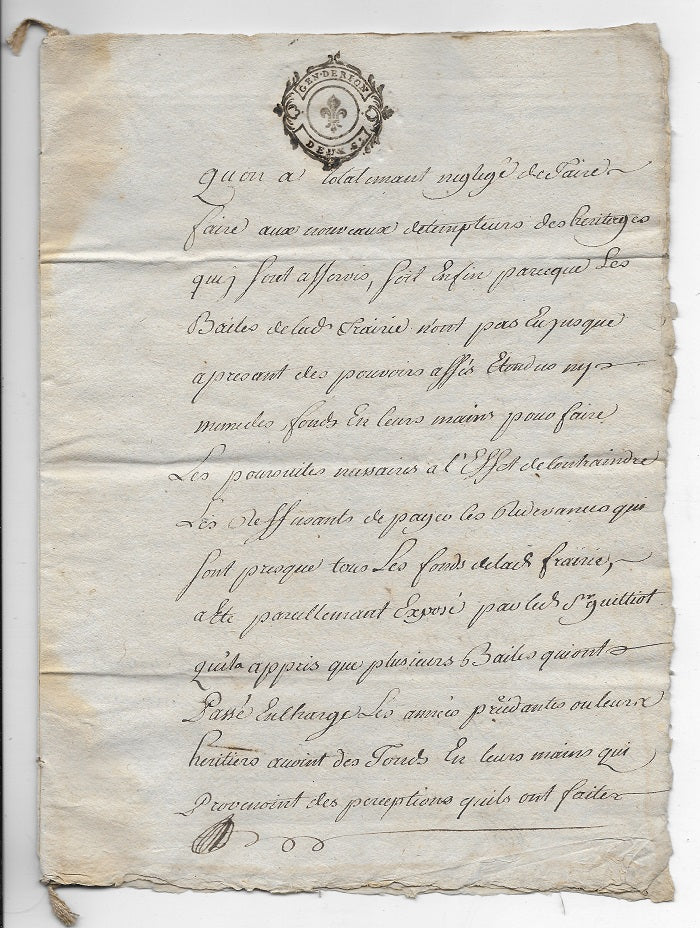 GEN. DE RION
DEUX S.
Quon a totalemant neglegé de Faire
faire aux nouveaux detempteurs des heritages
quij sont asservis, soit Enfin parceque Les
Bailes deladt frairie n'ont pas Eu jusque
apresant des pouvoirs assés Etendus ny
memedes fonds En leurs mains pour faire
Les poursuites nessaires a l'Effet de Contraindre
Les Reffusants de payer les Redevances qui
sont presque tous Les fonds deladt frairie,
a Eté pareillemant Exposé par ledt Sr guilliot
qu'ila appris que plusieurs Bailes quiont
Passé Encharge Les années précédantes ou leurs
heritiers avoint des Fonds En leurs mains qui
Provenoint des perceptions quils ont faites